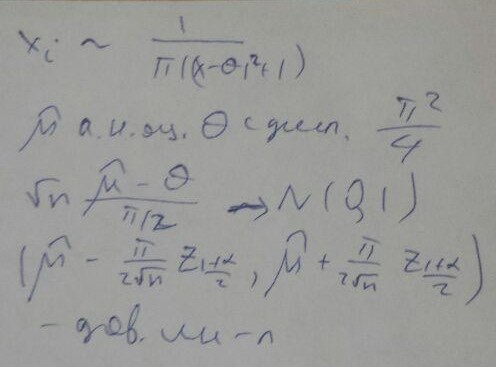 xᵢ ~ 1/(π((x-θ)²+1))
μ̂ а.н.оц. θ с дисп. π²/4
√n (μ̂ - θ)/(π/2) → N(0,1)
(μ̂ - π/(2√n) z_{(1+α)/2}, μ̂ + π/(2√n) z_{(1+α)/2})
- дов. ин-л